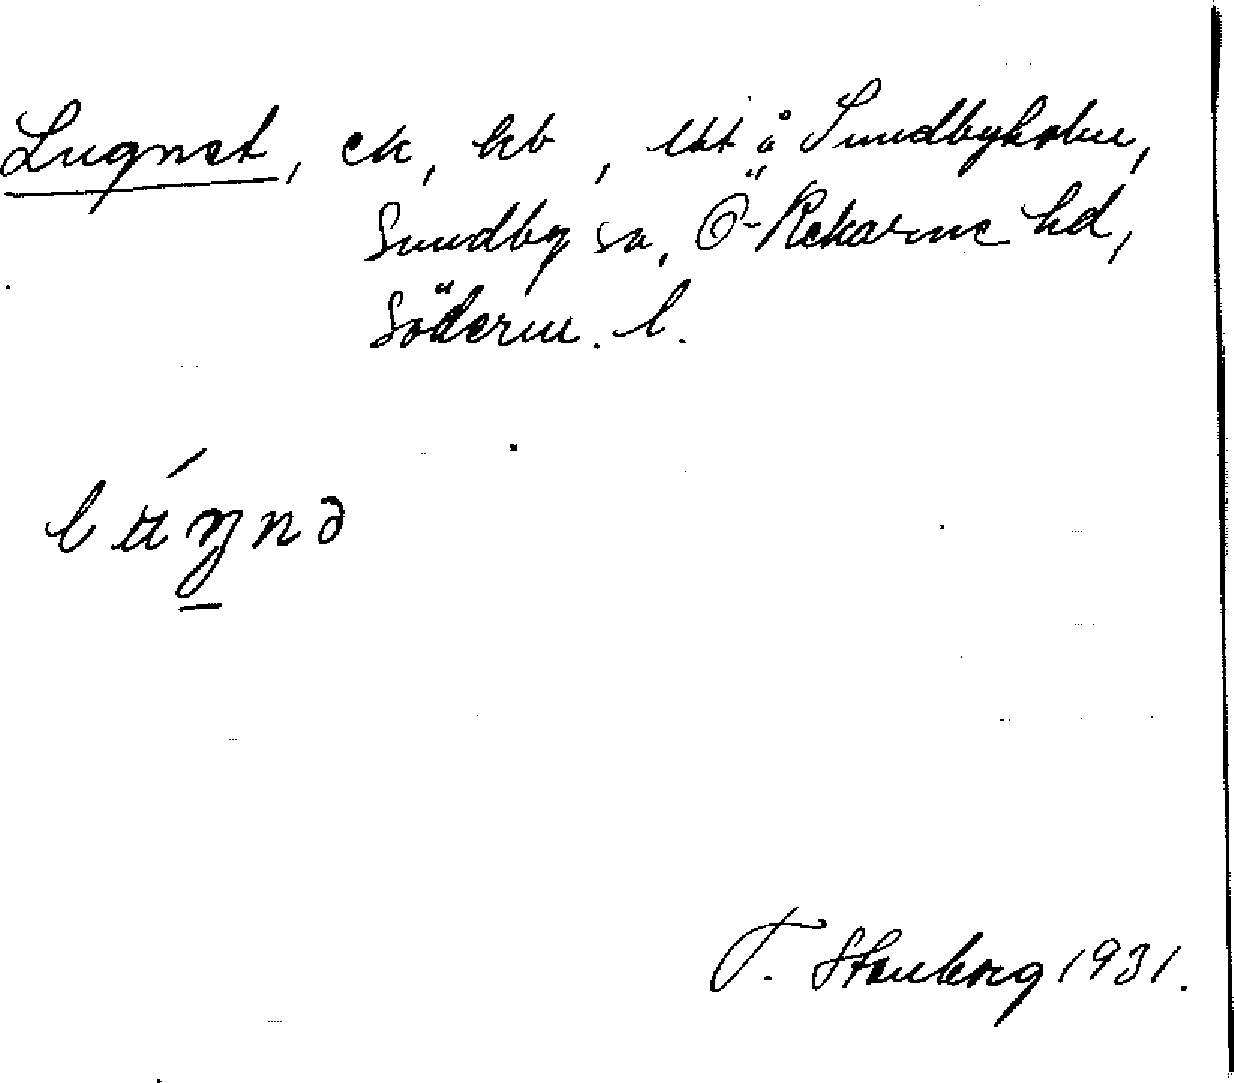 Lugnet, ek, hb, lht å Sundbyholm,
Sundby sn, Ö-Rekarne hd,
Söderm. l.
T. Stenborg 1931.